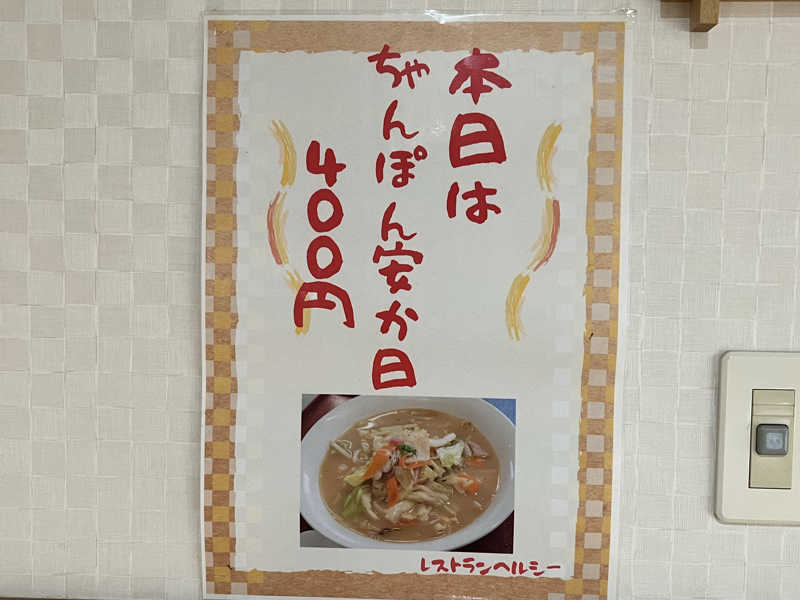 本日は
ちゃんぽん安か日
400円
レストランヘルシー